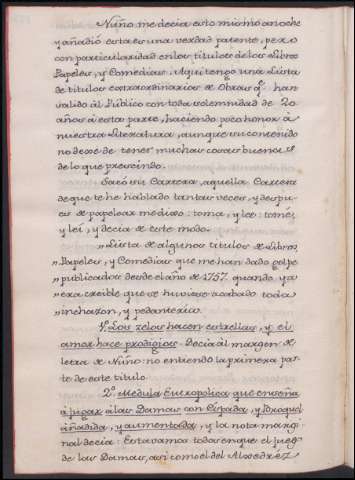 Nuño me decia esto mismo anoche
y añadió esta es una verdad patente, pero
con particularidad en los titulos de los Libros
Papeles, y Comedias. Aqui tengo una Lista
de titulos extraordinarios de Obras q.e han
salido al Público con toda solemnidad de 20
años á esta parte, haciendo poco honor á
nuestra Literatura, aunque su contenido
no dexe de tener muchas cosas buenas
de lo que prescindo.
Sacó su Cartera, aquella Cartera
de que te he hablado tantas veces, y despu-
es de papelear me dixo: toma, y lee: tomé,
y leí, y decia de este modo.
"Lista de algunos titulos de Libros,
"Papeles, y Comedias que me han dado golpe
"publicados desde el año de 1757. quando ya
"era creible que se huviese acabado toda
"inchazon, y pedanteria.
1.º Los zelos hacen estrellas, y el
amor hace prodigios. Decia al margen de
letra de Nuño: no entiendo la primera par-
te de este titulo.
2.º Medula Eutropolica que enseña
á jugar á las Damas con Espada, y Broquel
añadida, y aumentada, y la nota margi-
nal decia: Estavamos todos en que el jueg
de las Damas, asi como el del Alxedrez